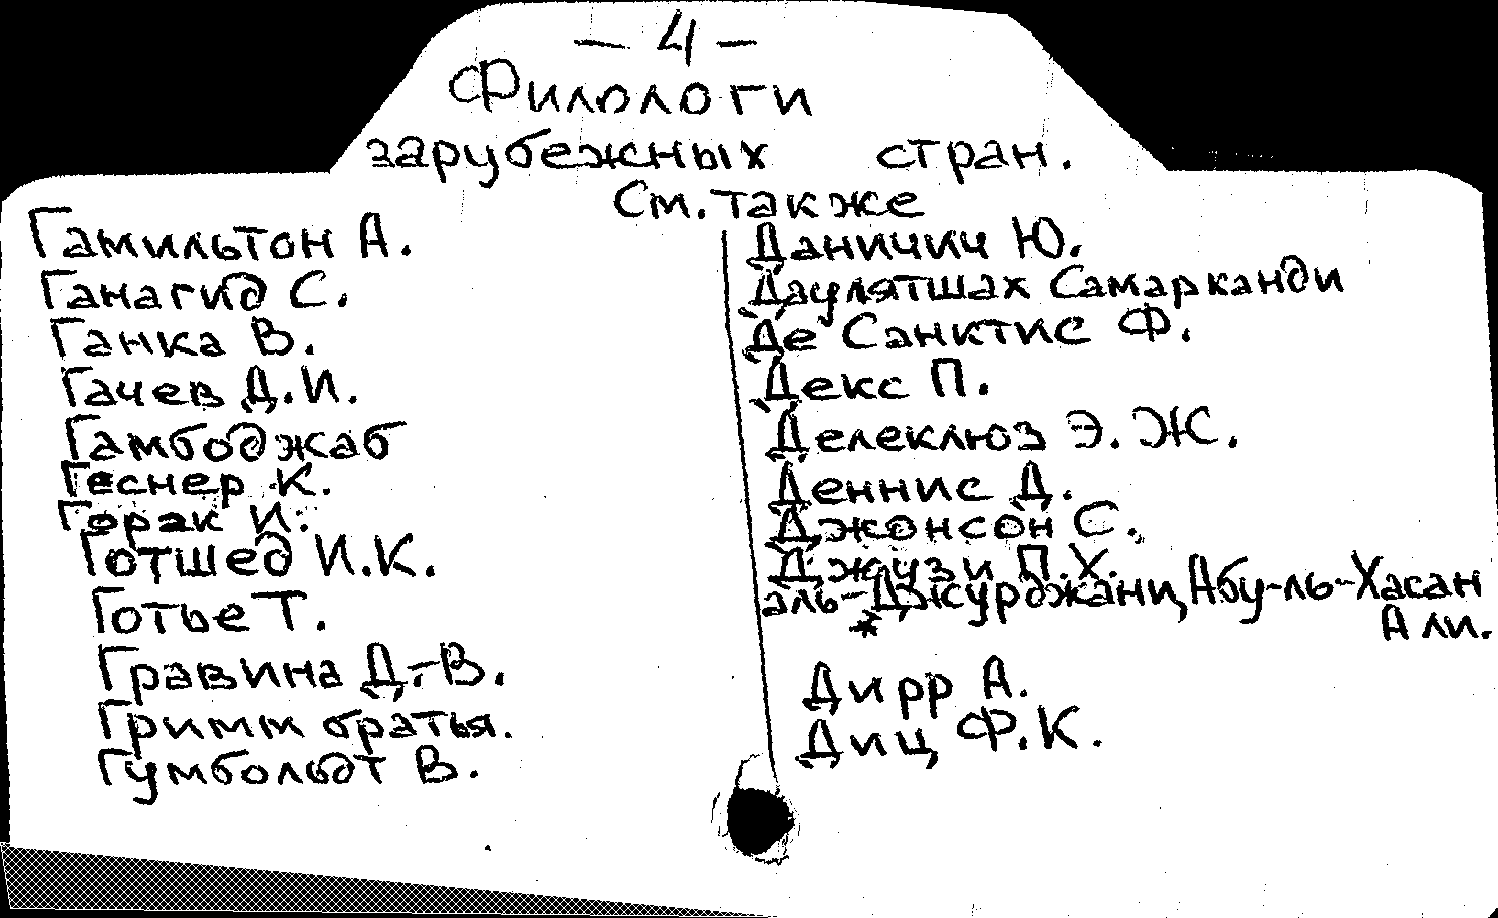 — 4 —
Филологи
зарубежных стран.
См. также
Гамильтон А.
Ганагид С.
Ганка В.
Гачев Д.И.
Гамбоджаб
Геснер К.
Горак И.
Готшед И.К.
Готье Т.
Гравина Д.-В.
Гримм братья.
Гумбольдт В.
Даничич Ю.
Даулятшах Самарканди
Де Санктис Ф.
Декс П.
Делеклюз Э. Ж.
Деннис Д.
Джонсон С.
Джузи П.Х.
аль-Джурджани, Абу-ль-Хасан
Али.
Дирр А.
Диц Ф.К.